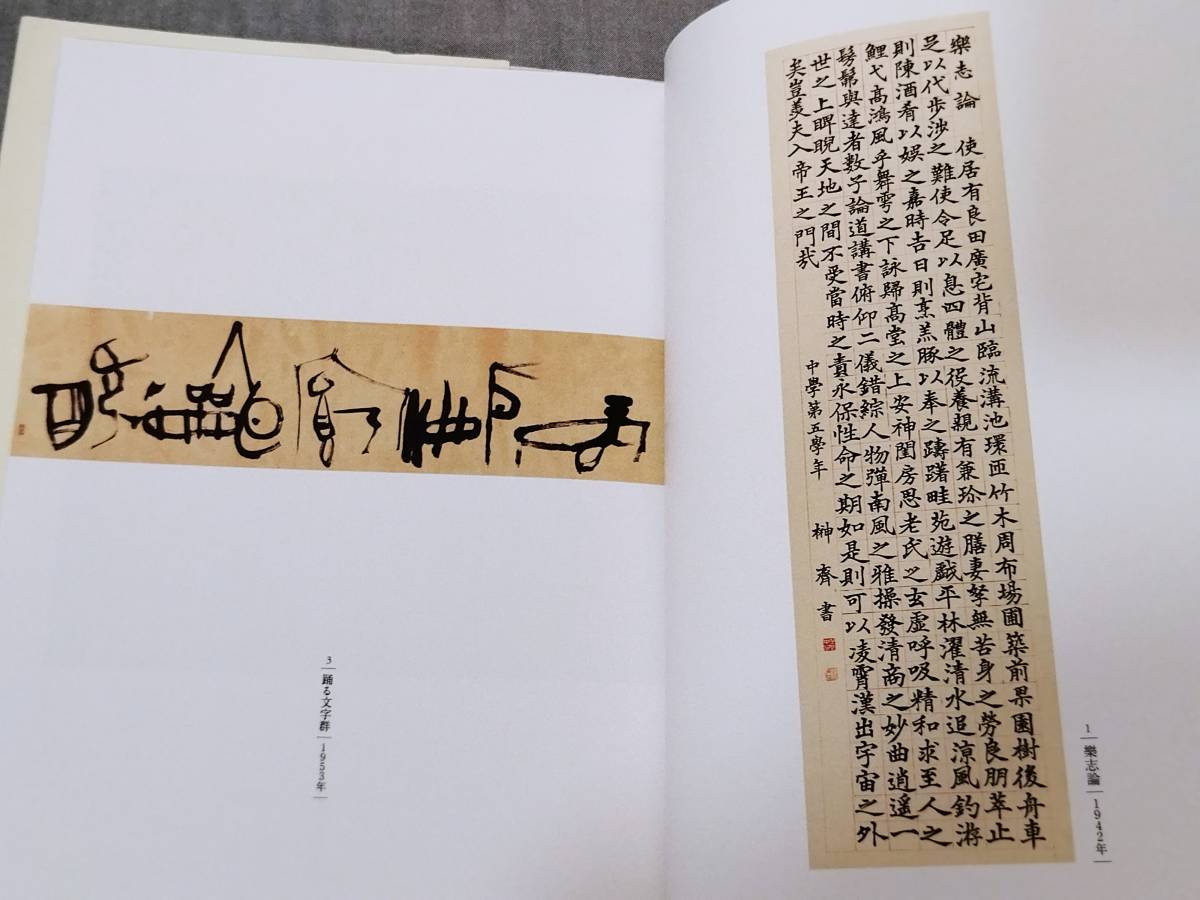 樂志論　使居有良田廣宅背山臨流溝池環匝竹木周布場圃築前果園樹後舟車
足以代步涉之難使令足以息四體之役養親有兼珍之膳妻孥無苦身之勞良朋萃止
則陳酒肴以娛之嘉時吉日則烹羔豚以奉之躊躇畦苑遊戲平林濯清水追涼風釣游
鯉弋高鴻風乎舞雩之下詠歸高堂之上安神閨房思老氏之玄虛呼吸精和求至人之
髣髴與達者數子論道講書俯仰二儀錯綜人物彈南風之雅操發清商之妙曲逍遙一
世之上睥睨天地之間不受當時之責永保性命之期如是則可以凌霄漢出宇宙之外
矣豈羨夫入帝王之門哉
中學第五學年　榊齊書
1｜樂志論｜1942年
3｜踊る文字群｜1953年